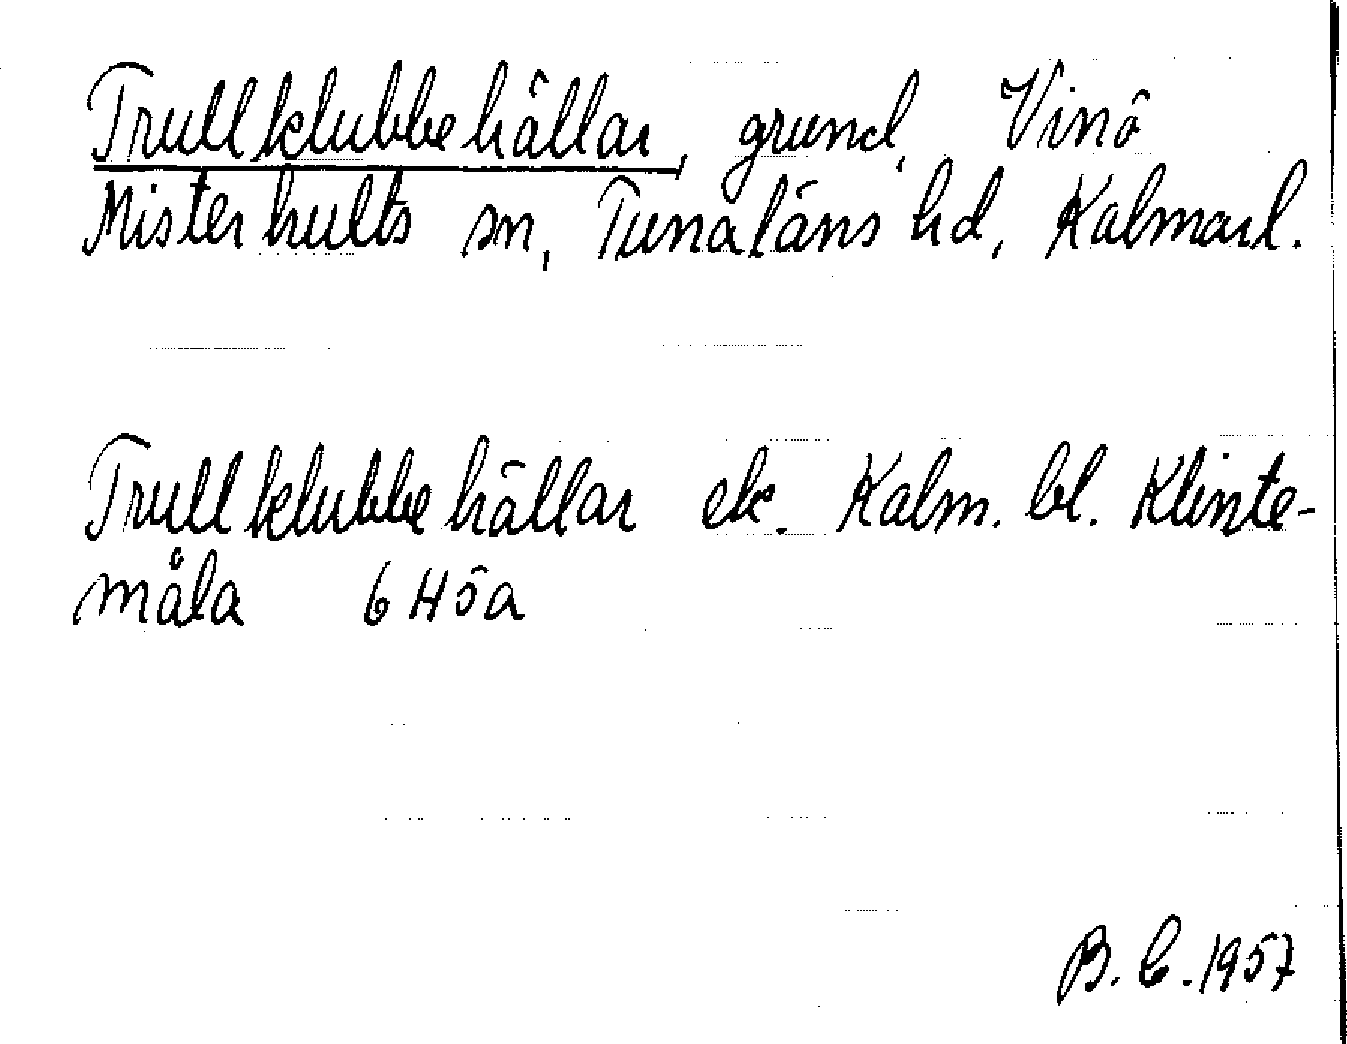 Trullklubbehällar, grund, Vinö
Misterhults sn, Tunaläns hd, Kalmarl.
Trullklubbehällar ek. Kalm. bl. Klinte-
måla 6 H5a
B. C. 1957